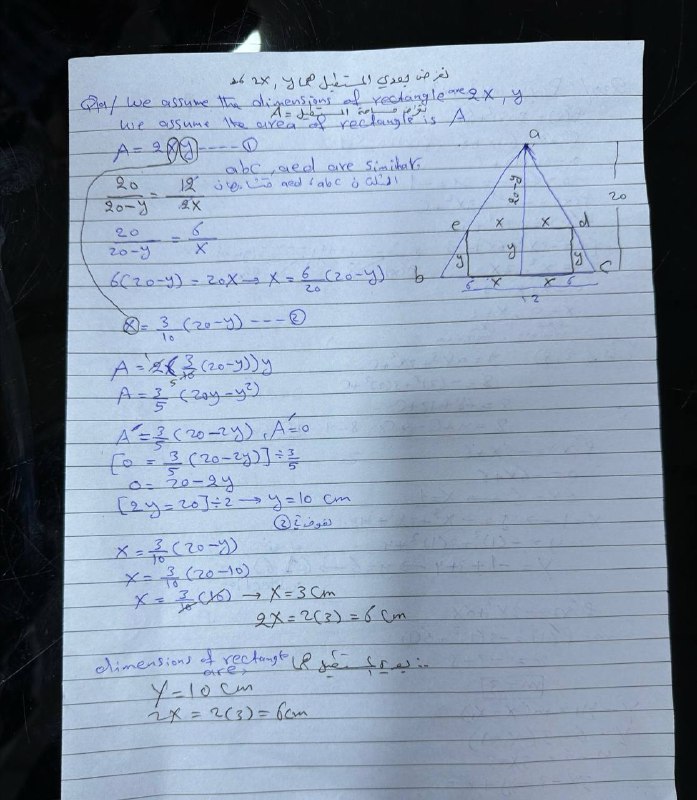 نفرض بعدي المستطيل هما 2x, y
Q1a/ We assume the dimensions of rectangle are 2x, y
نفرض مساحة المستطيل = A
We assume the area of rectangle is A
A = 2xy ---- ①
abc, aed are similar.
20/20-y = 12/2x المثلثان aed, abc متشابهان
20/20-y = 6/x
6(20-y) = 20x → x = 6/20 (20-y)
x = 3/10 (20-y) --- ②
A = 2(3/10 (20-y))y
A = 3/5 (20y-y²)
A' = 3/5 (20-2y), A'=0
[0 = 3/5 (20-2y)] ÷ 3/5
0 = 20-2y
[2y=20]÷2 → y=10 cm
② نعوض في
x = 3/10 (20-y)
x = 3/10 (20-10)
x = 3/10 (10) → x = 3 cm
2x = 2(3) = 6 cm
dimensions of rectangle are: بعدي المستطيل هما
y = 10 cm
2x = 2(3) = 6cm
a
20-y
20
e x x d
y y y
b x x c
12